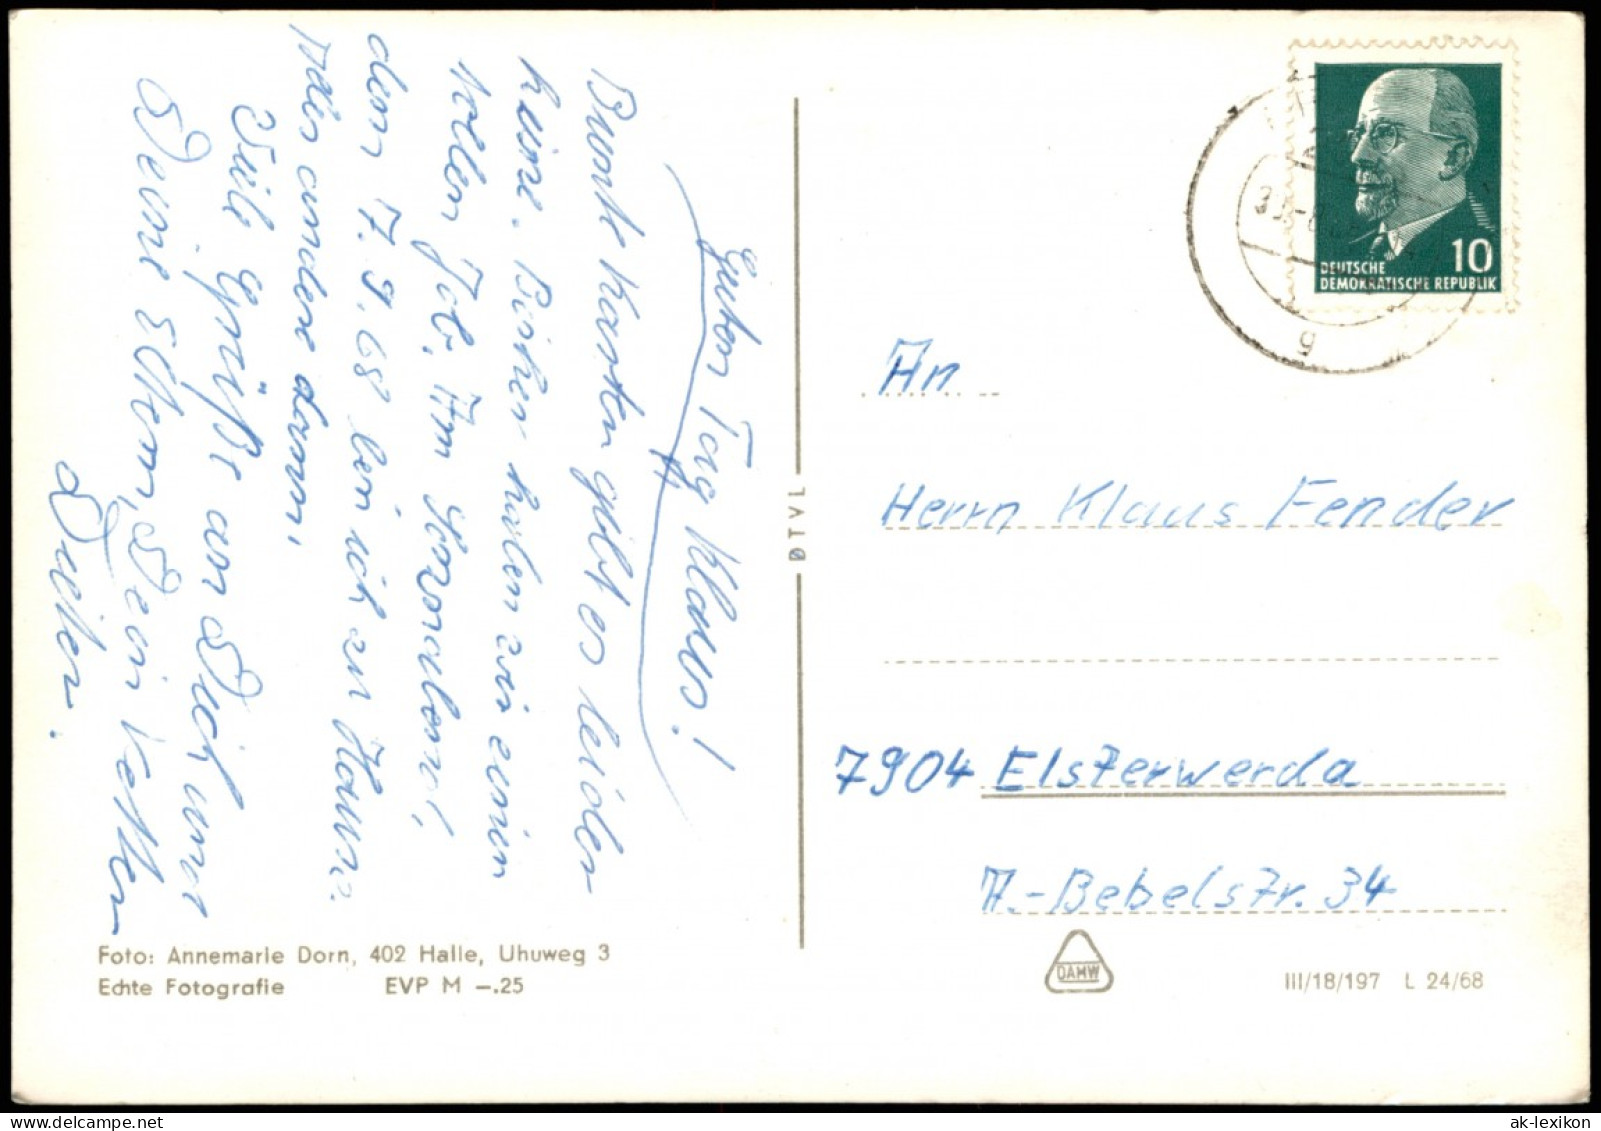 Guten Tag Klaus!
Bunte Karten gibt es leider
keine. Bisher haben wir einen
tollen Job. Am
den 7.9.68 bin ich zu Hause
alles andere dann.
Viele Grüße an Dich und
Deine Eltern, Dein Vetter
Dieter.
10
DEUTSCHE
DEMOKRATISCHE REPUBLIK
g
An
Herrn Klaus Fender
7904 Elsterwerda
A.-Bebelstr. 34
ØTVL
Foto: Annemarie Dorn, 402 Halle, Uhuweg 3
Echte Fotografie EVP M —.25
DAMW
III/18/197 L 24/68
ak-lexikon